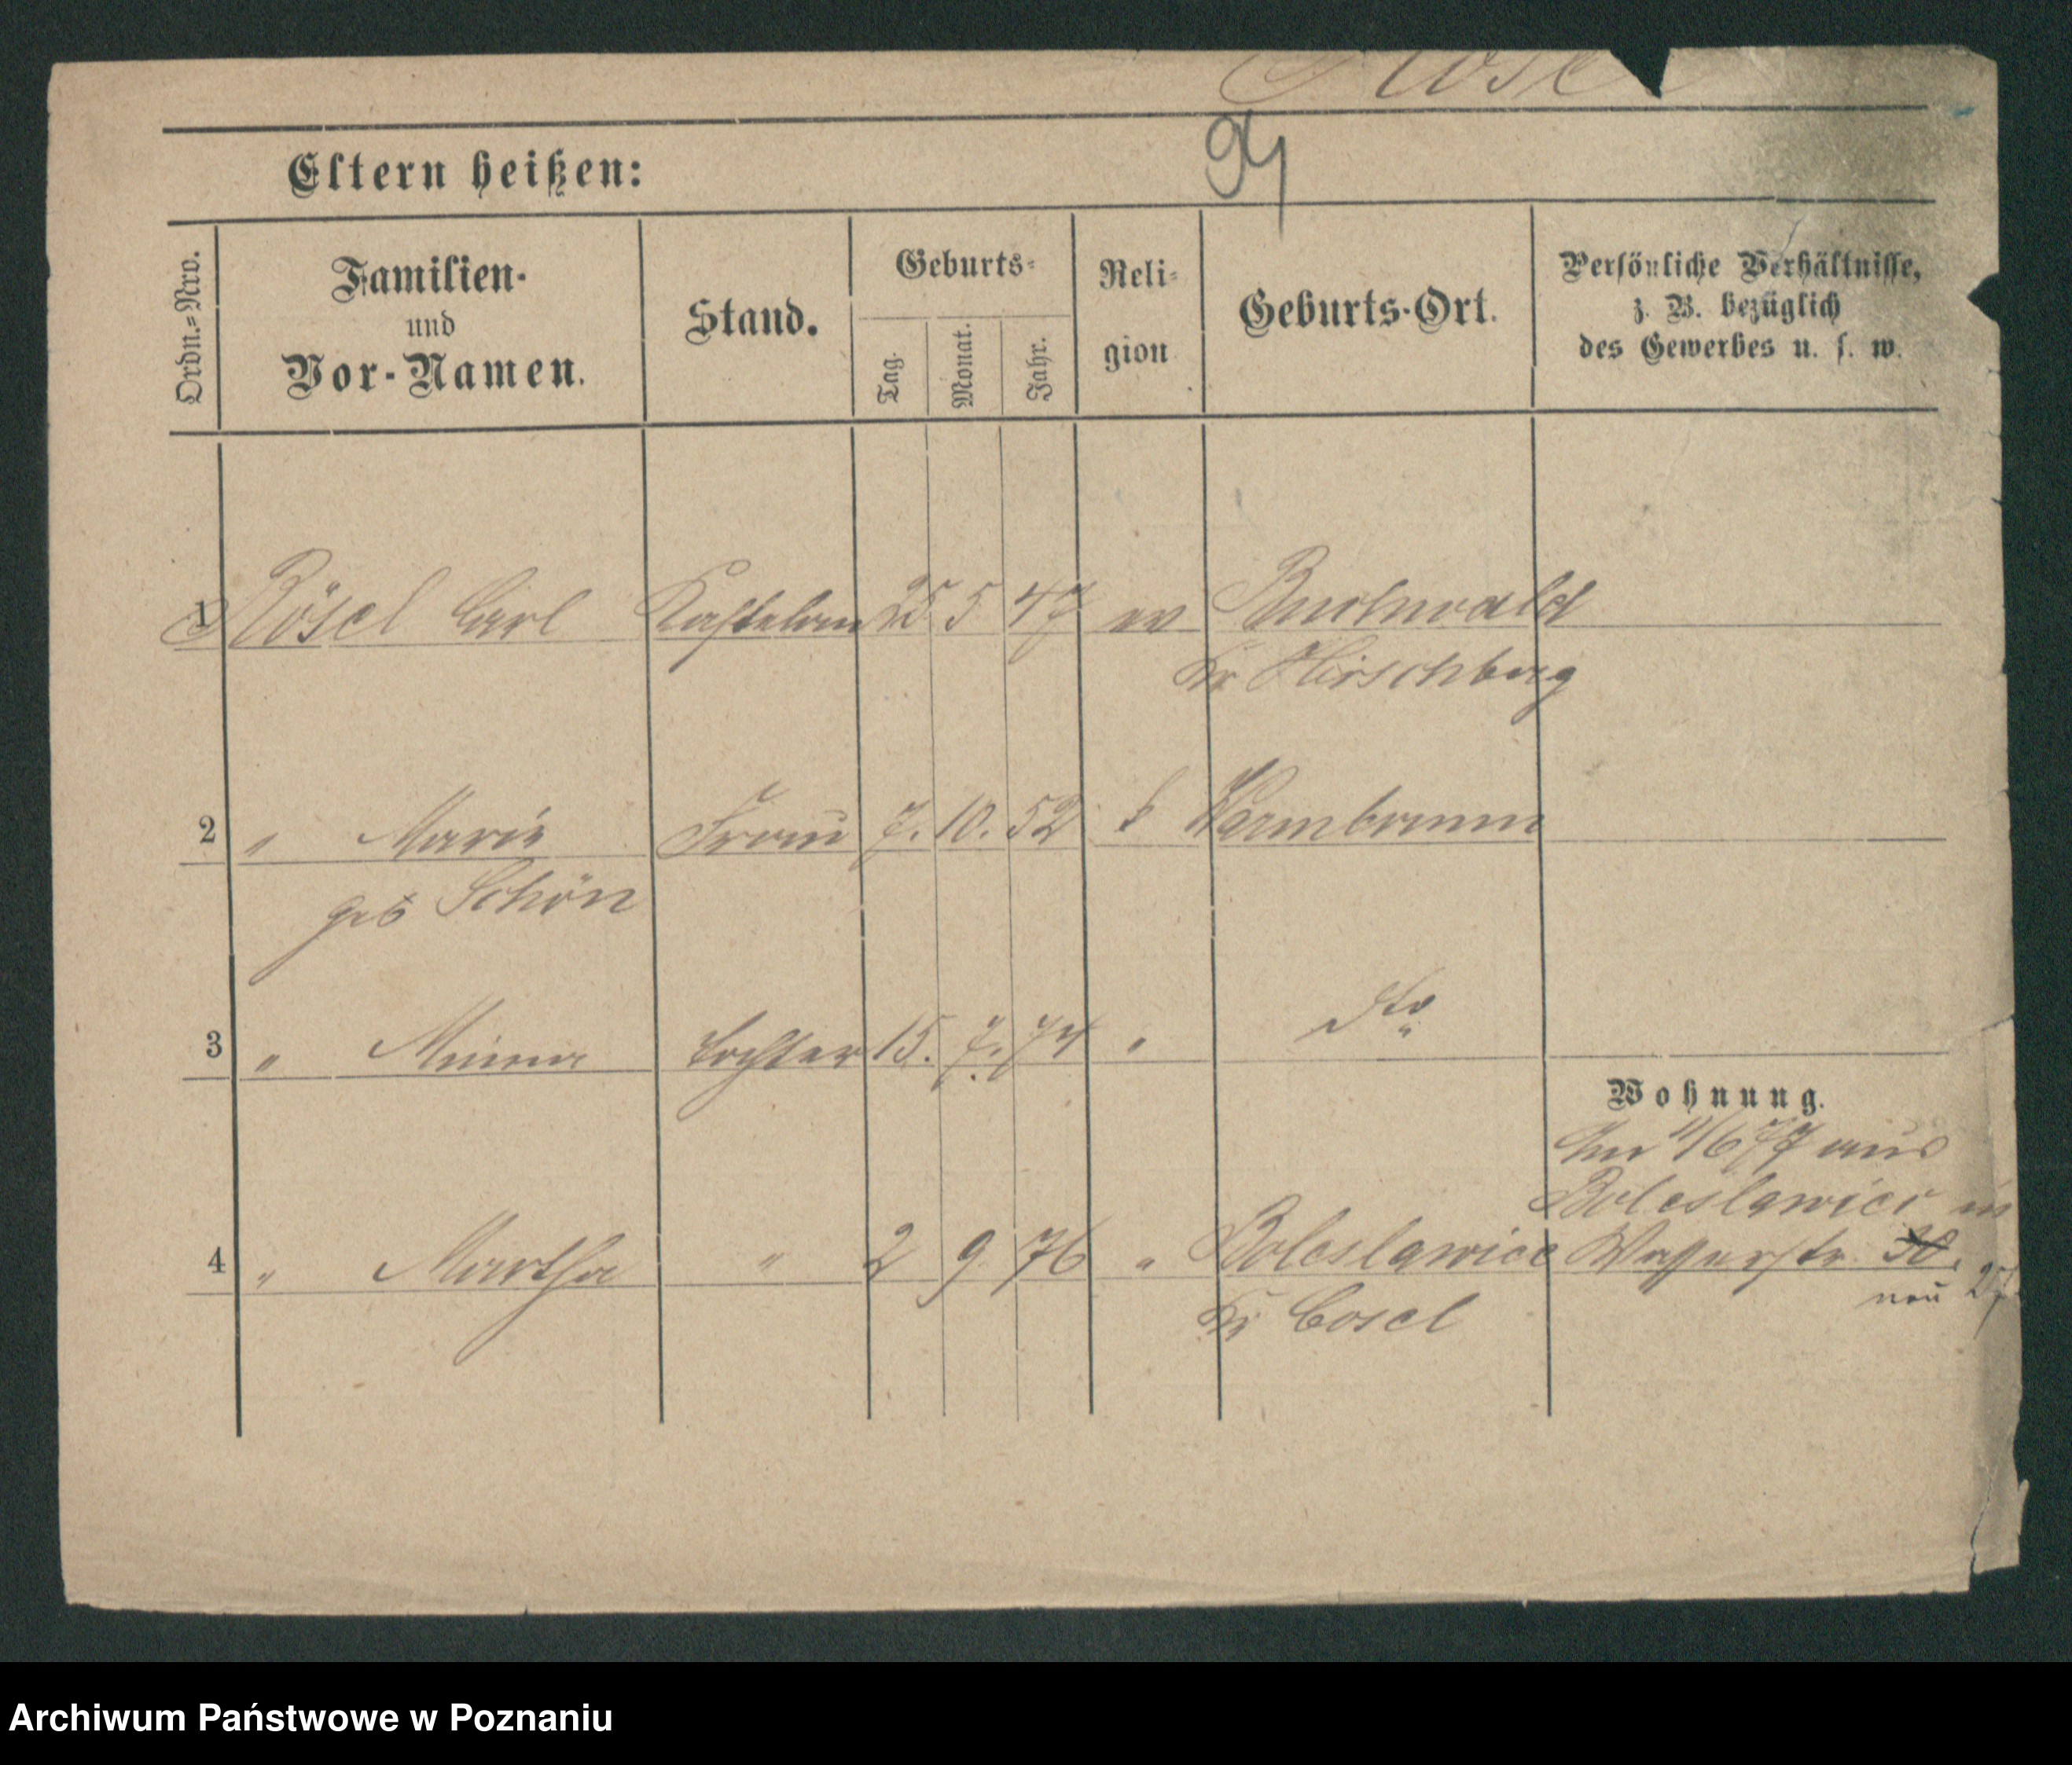 Rösel
94
Eltern heißen:
Ordn.=Nro.
Familien-
und
Vor-Namen.
Stand.
Geburts-
Tag.
Monat.
Jahr.
Reli-
gion
Geburts-Ort.
Persönliche Verhältnisse,
z. B. bezüglich
des Gewerbes u. s. w.
1 Rösel Carl Kastelan 25 5 47 ev Buchwald
Kr Hirschberg
2 " Marie Frau 7. 10. 52 k Warmbrunn
geb Schön
3 " Minna Tochter 15. 7. 74 " dto
Wohnung.
Am 11/6 77 aus
Boleslawice in
4 " Martha " 2 9 76 " Boleslawice Wasserstr. 30.
neu 27
Kr Cosel
Archiwum Państwowe w Poznaniu